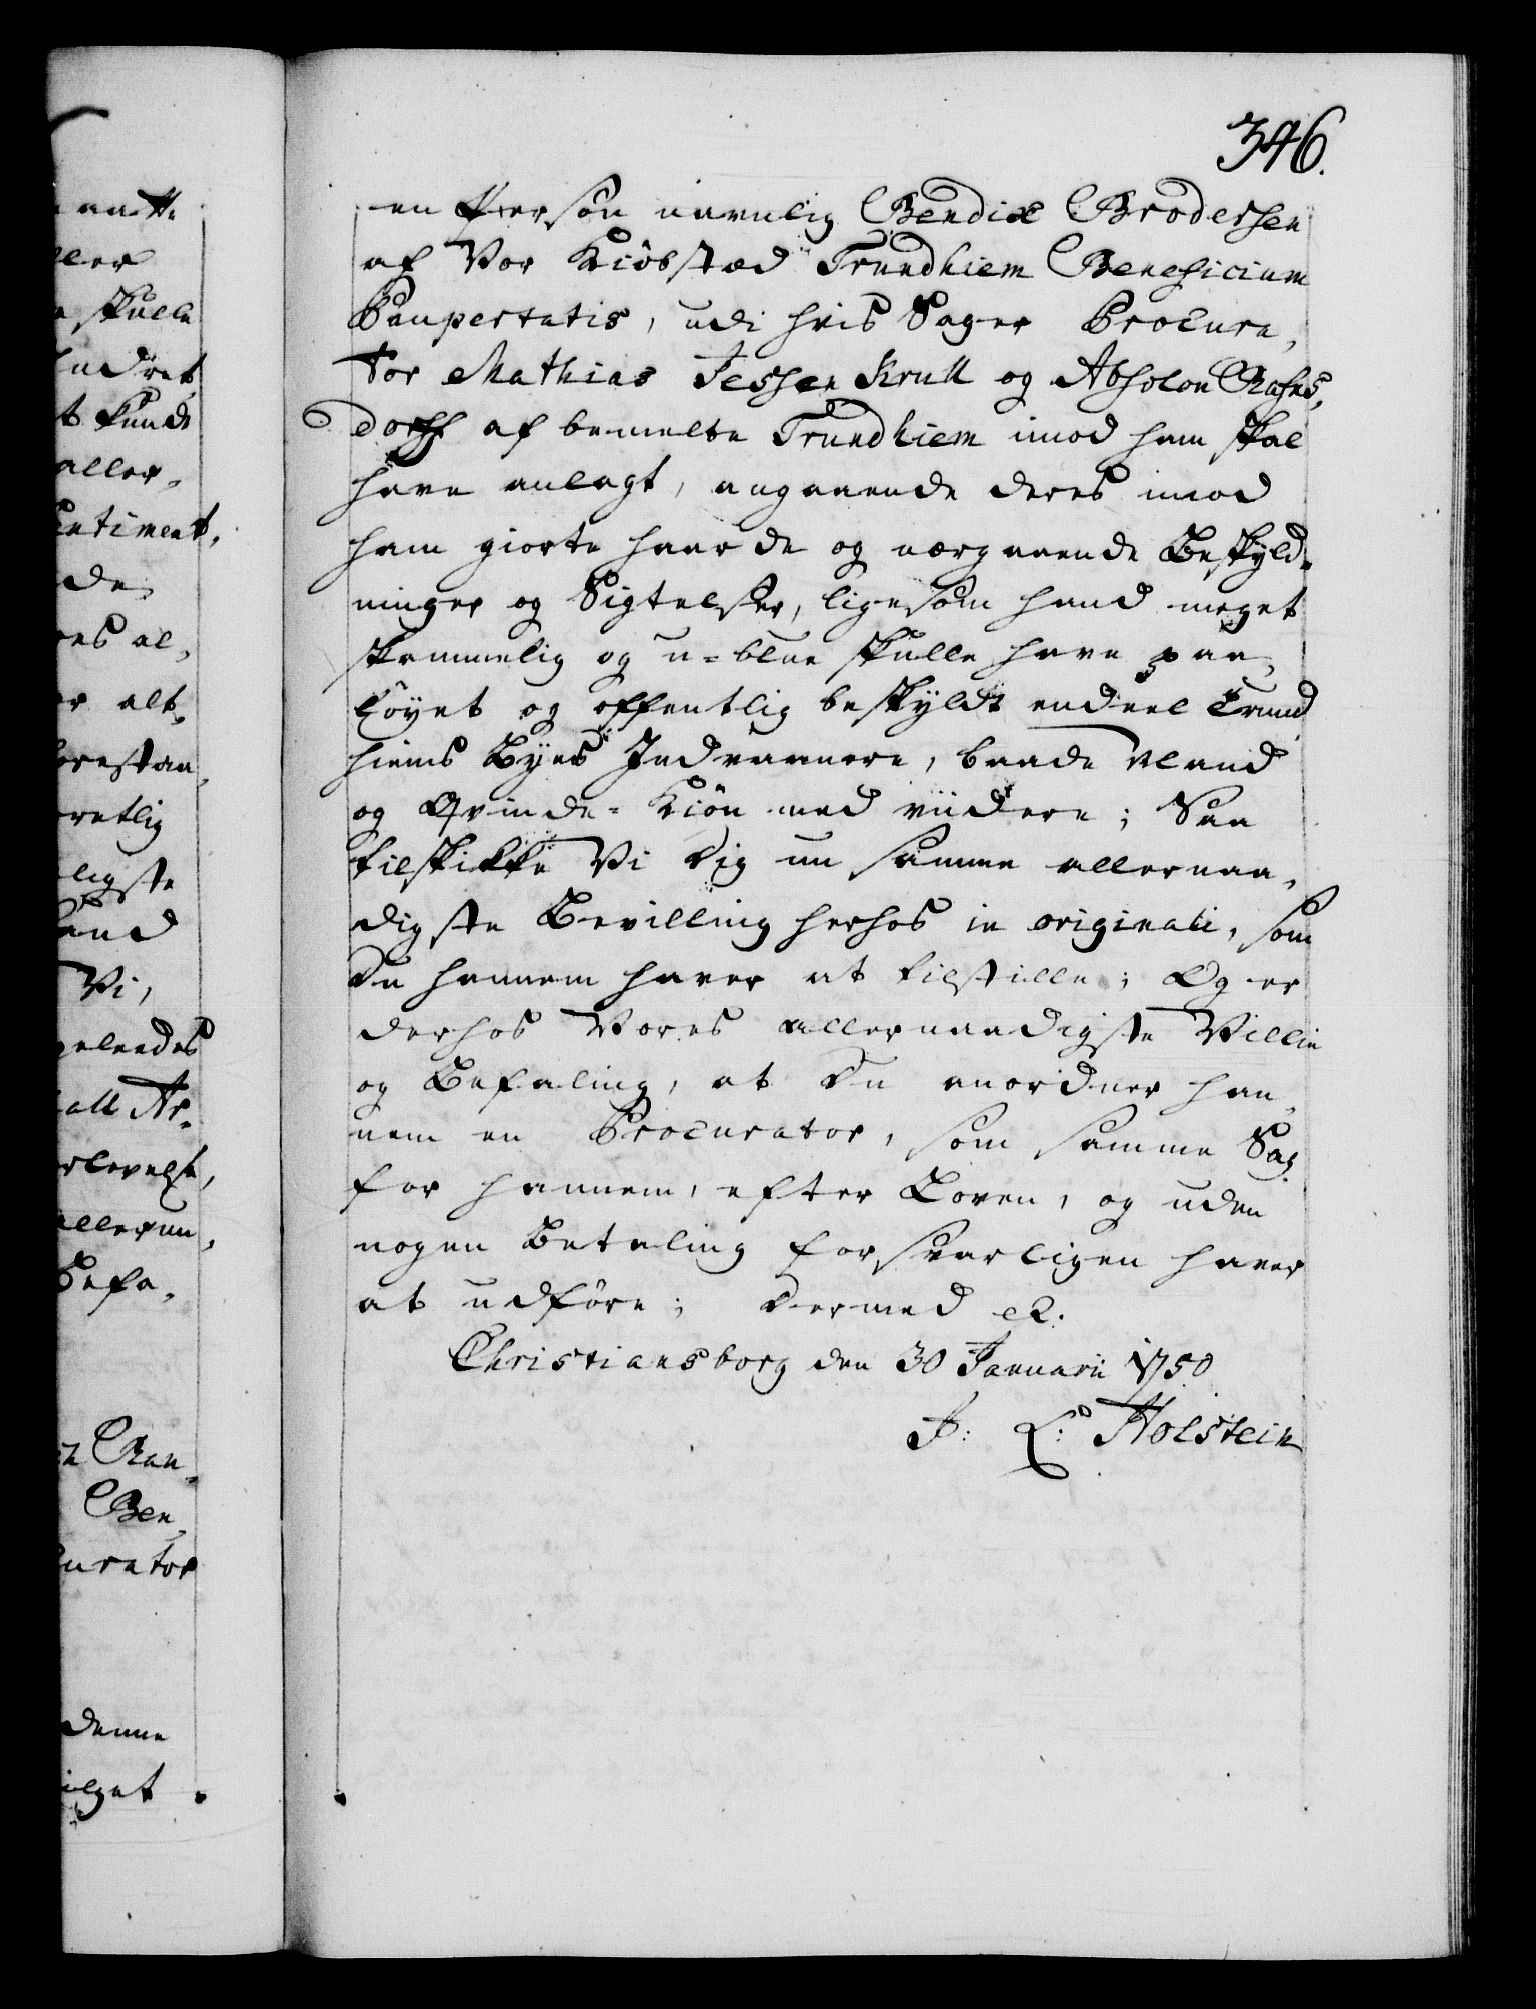 346.
en Persøn navnlig Bendix Brodersen
af Vor Kiöbstæd Trundhiem Beneficium
Paupertatis, udi hvis Sager Procura,
tor Mathias Jessen Krull og Absolon
dorff af bemelte Trundhiem imod ham skal
have anlagt, angaaende deres imod
ham giorte haarde og nærgaaende Beskyld-
ninger og Sigtelser, ligesom hand meget
skammelig og u-blue skulle have paa,
löyet og offentlig beskyldt endeel Trund
hiems Byes Indvaanere, baade Mand
og Qvinde-Kiön med viidere; Saa
tilskikke Vi Dig nu samme allernaa,
digste Bevilling herhos in originali, som
Du hannem haver at tilstille; Og er
derhos Vores allernaadigste Villie
og Befaling, at Du anordner han,
nem en Procurator, som samme Sag
for hannem, efter Loven, og uden
nogen Betaling forsvarligen haver
at udföre; Dermed &c.
Christiansborg den 30 Januarii 1750
J: L: Holstein
aatt.
ller
skulle
indret
t kunde
aller,
entiment,
de
res al,
er alt,
orestaa,
retlig
ligste
Vi,
geleedes
all Ar,
rlevelse,
allerun,
Befa,
Ran,
Ben,
curator
denne